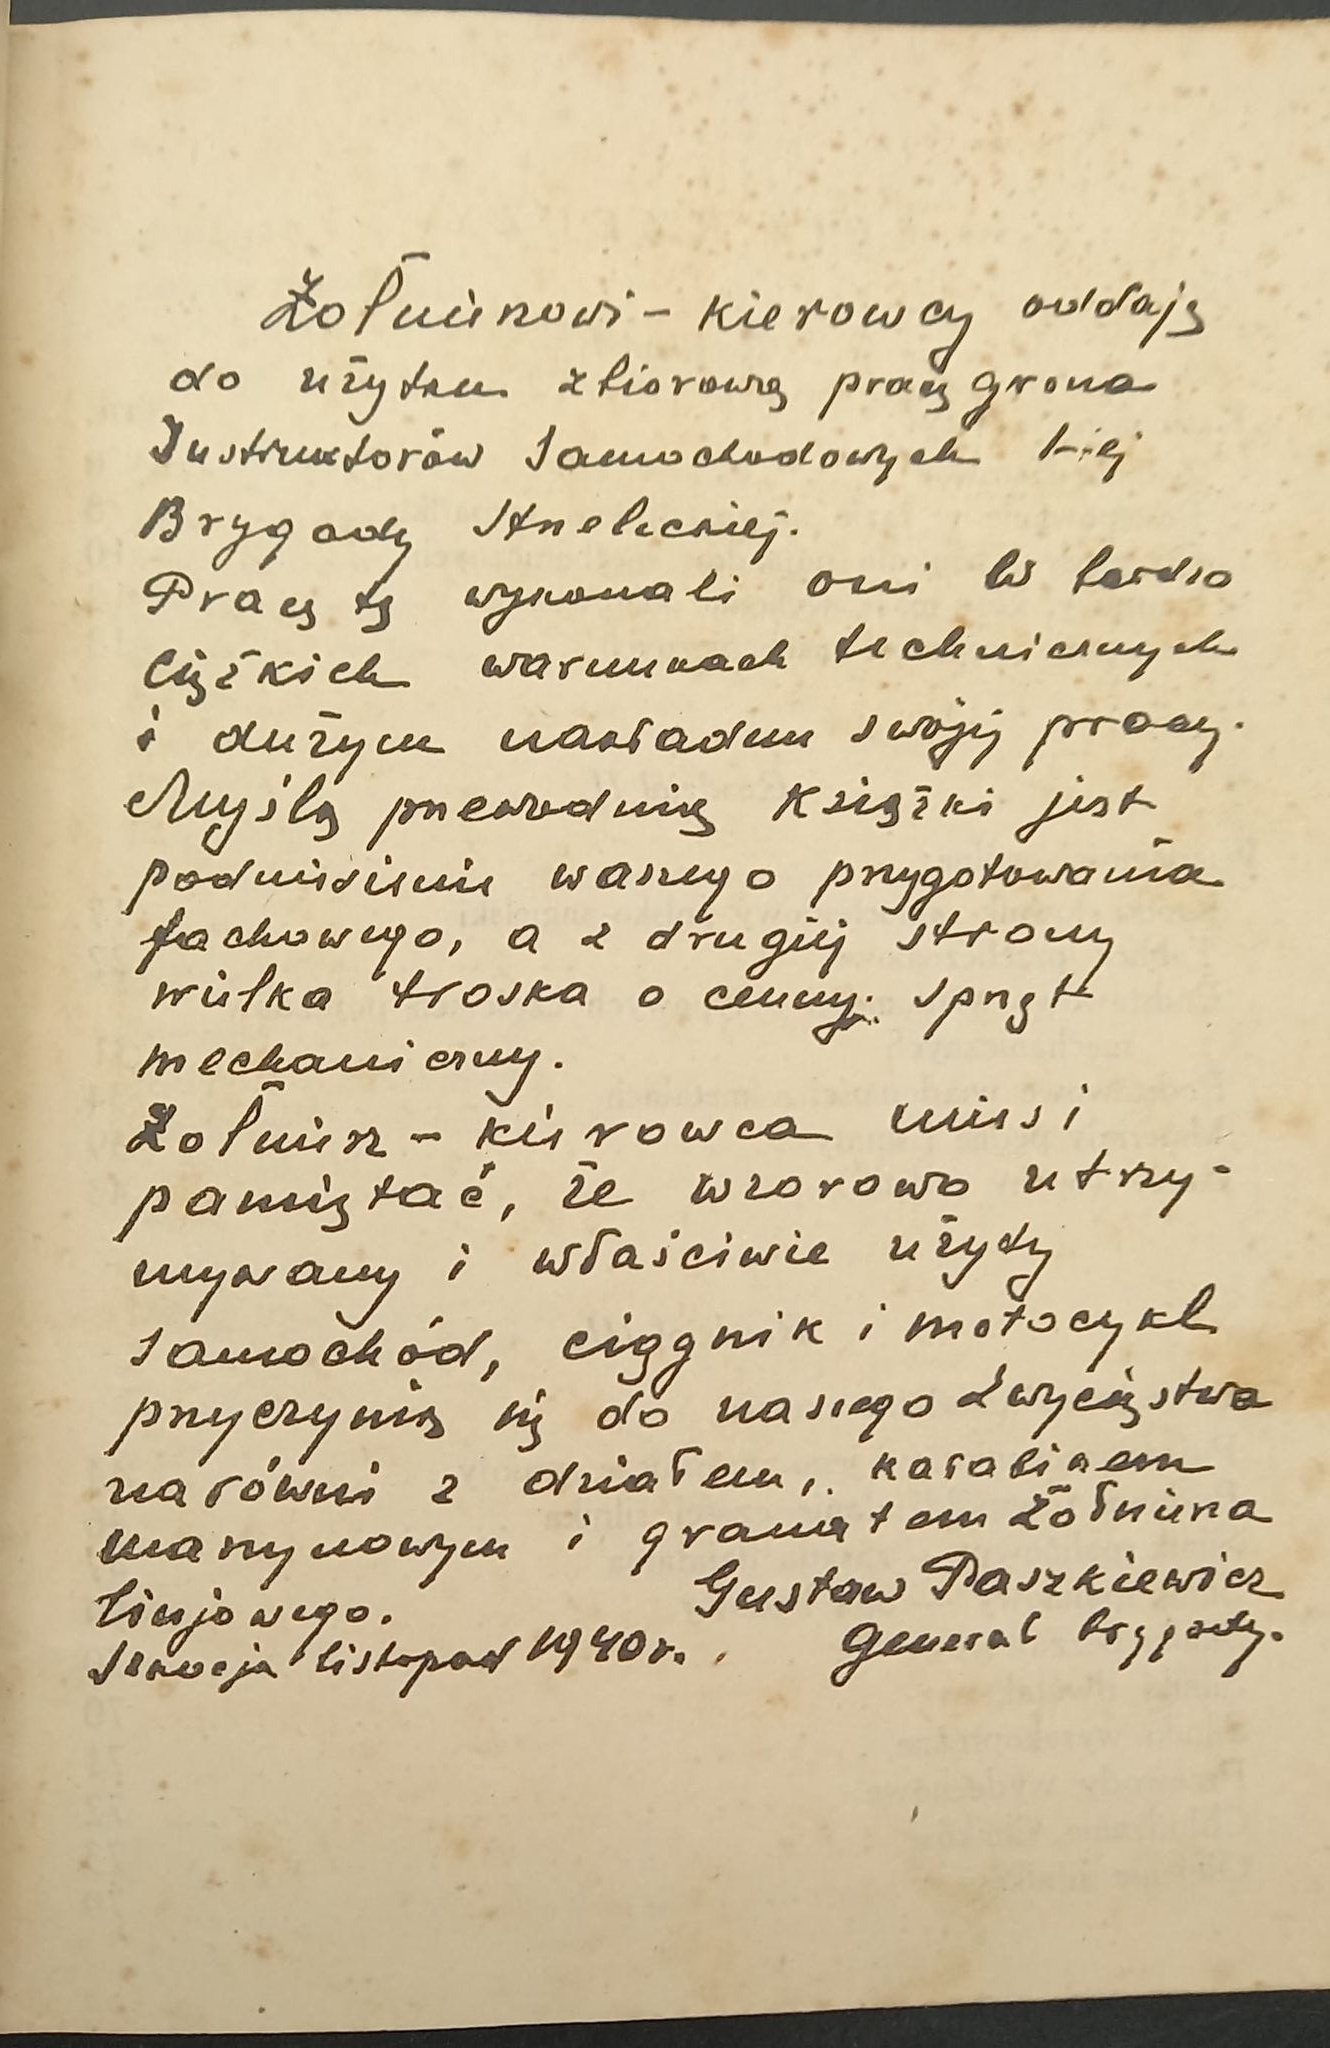 Żołnierzowi - kierowcy oddaję
do użytku zbiorową pracę grona
Instruktorów Samochodowych 1-ej
Brygady Strzeleckiej.
Pracę tę wykonali oni w bardzo
ciężkich warunkach technicznych
i dużym nakładem swojej pracy.
Myślą przewodnią książki jest
podniesienie waszego przygotowania
fachowego, a z drugiej strony
wielka troska o cenny sprzęt
mechaniczny.
Żołnierz - kierowca musi
pamiętać, że wzorowo utrzy-
mywany i właściwie użyty
samochód, ciągnik i motocykl
przyczynią się do naszego zwycięstwa
narówni z działem, karabinem
maszynowym i granatem żołnierza
linjowego.
Gustaw Paszkiewicz
Szkocja listopad 1940 r.
Generał brygady.